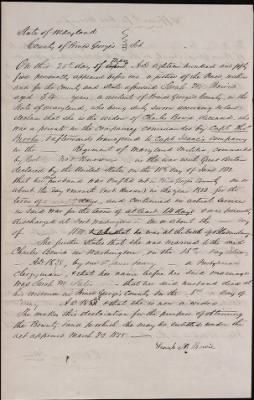 State of Maryland
County of Prince George's Sct
On this 25th day of May A.D. eighteen hundred and fifty
five personally appeared before me a justice of the Peace within
and for the County and State aforesaid Sarah M. Bowie
aged 54 years a resident of Prince George's County in the
State of Maryland, who being duly sworn according to law
declares that she is the widow of Charles Bowie deceased, who
was a private in the Company commanded by Capt
& afterwards transferred to Capt Isaac's company
in the Regiment of Maryland Militia commanded
by Col in the war with Great Britain
declared by the United States on the 18th day of June 1812
that her husband was drafted at Prince George's County on or
about the day of in the year 1813 for the
term of days, and continued in actual service
in said war for the term of at least 14 days & was honorably
discharged at on or about the day
of he was at the battle of Bladensburg
She further states that she was married to the said
Charles Bowie in Washington on the 18th day of
A.D. 18 by one a
Clergyman & that her name before her said marriage
was Sarah M. that her said husband died at
his residence in Prince George's County on the day of
May A.D. 18 & that she is now a widow.
She makes this declaration for the purpose of obtaining
the Bounty land to which she may be entitled under the
act approved March 3d 1855
Sarah M. Bowie